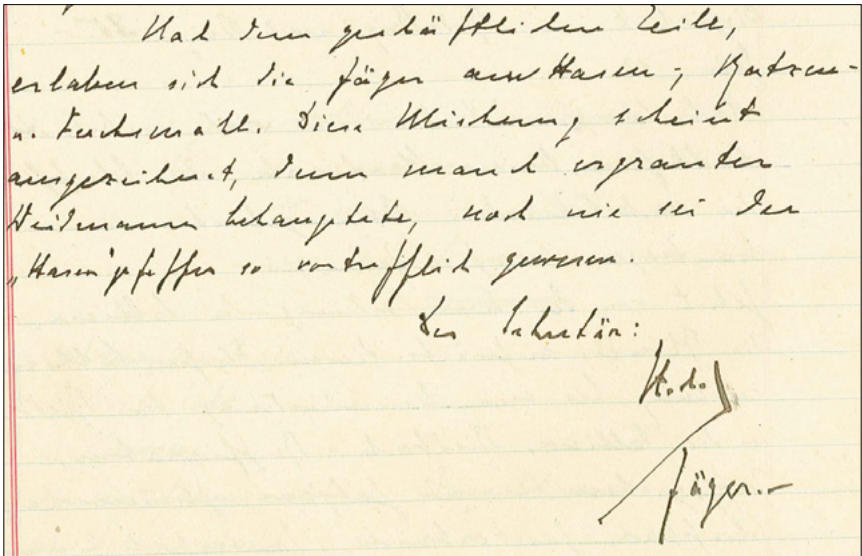 Nach dem geschäftlichen Teile,
erlaben sich die Jäger am Hasen-, Katzen-
u. Fuchsmahl. Diese Mischung scheint
ausgezeichnet, denn manch ergrauter
Weidmann behauptete, noch nie sei der
„Hasen"pfeffer so vortrefflich gewesen.
Der Sekretär:
Jäger.-